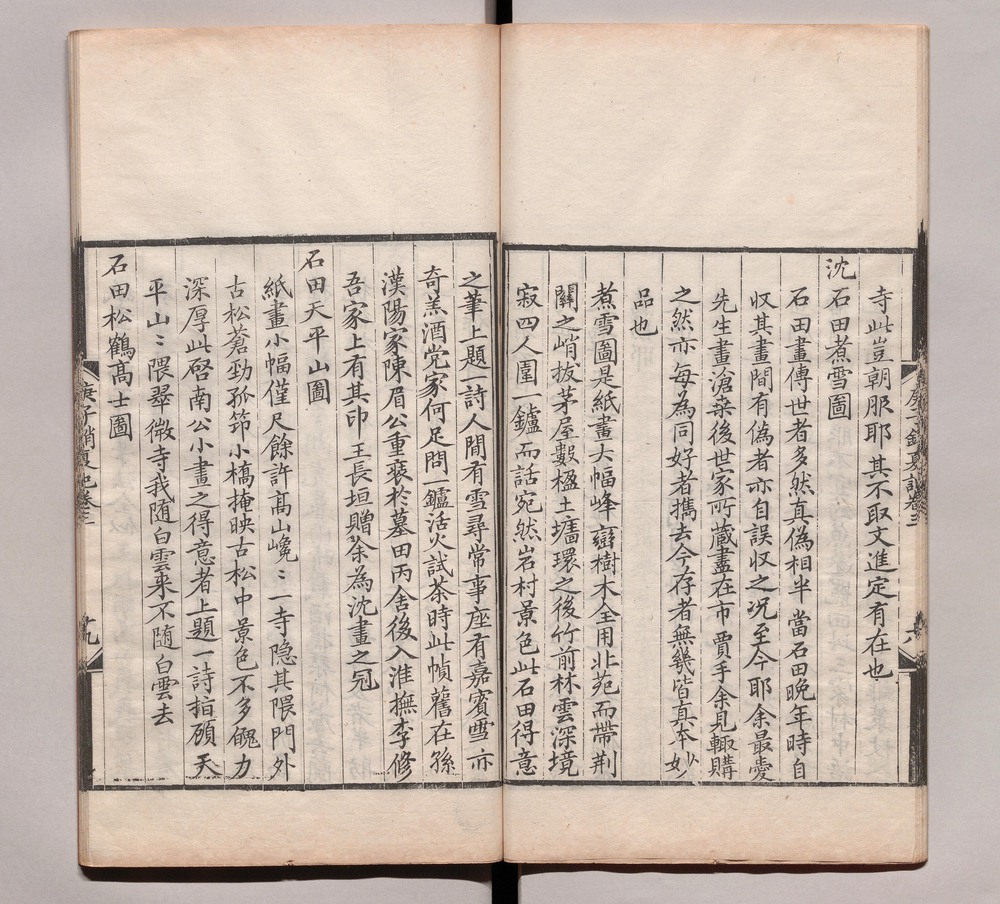 寺此豈朝服耶其不取文進定有在也
沈
石田煮雪圖
石田畫傳世者多然真偽相半當石田晚年時自
収其畫間有偽者亦自誤収之况至今耶余最愛
先生畫滄桒後世家所藏盡在市賈手余見輙購
之然亦每為同好者攜去今存者無幾皆真本妙
品也
煮雪圖是紙畫大幅峰巒樹木全用北苑而帶荆
關之峭拔茅屋數楹土墻環之後竹前林雲深境
寂四人圍一鑪而話宛然岩村景色此石田得意
之筆上題一詩人間有雪尋常事座有嘉賓雪亦
奇羔酒党家何足問一鑪活火試茶時此幀舊在孫
漢陽家陳眉公重裱於墓田丙舍後入淮撫李修
吾家上有其印王長垣贈余為沈畫之冠
石田天平山圖
紙畫小幅僅尺餘許髙山巉〻一寺隐其隈門外
古松蒼勁孤筇小橋掩映古松中景色不多魄力
深厚此啓南公小畫之得意者上題一詩指顧天
平山〻隈翠微寺我随白雲来不随白雲去
石田松鶴髙士圖
庚子銷夏記卷三
十九